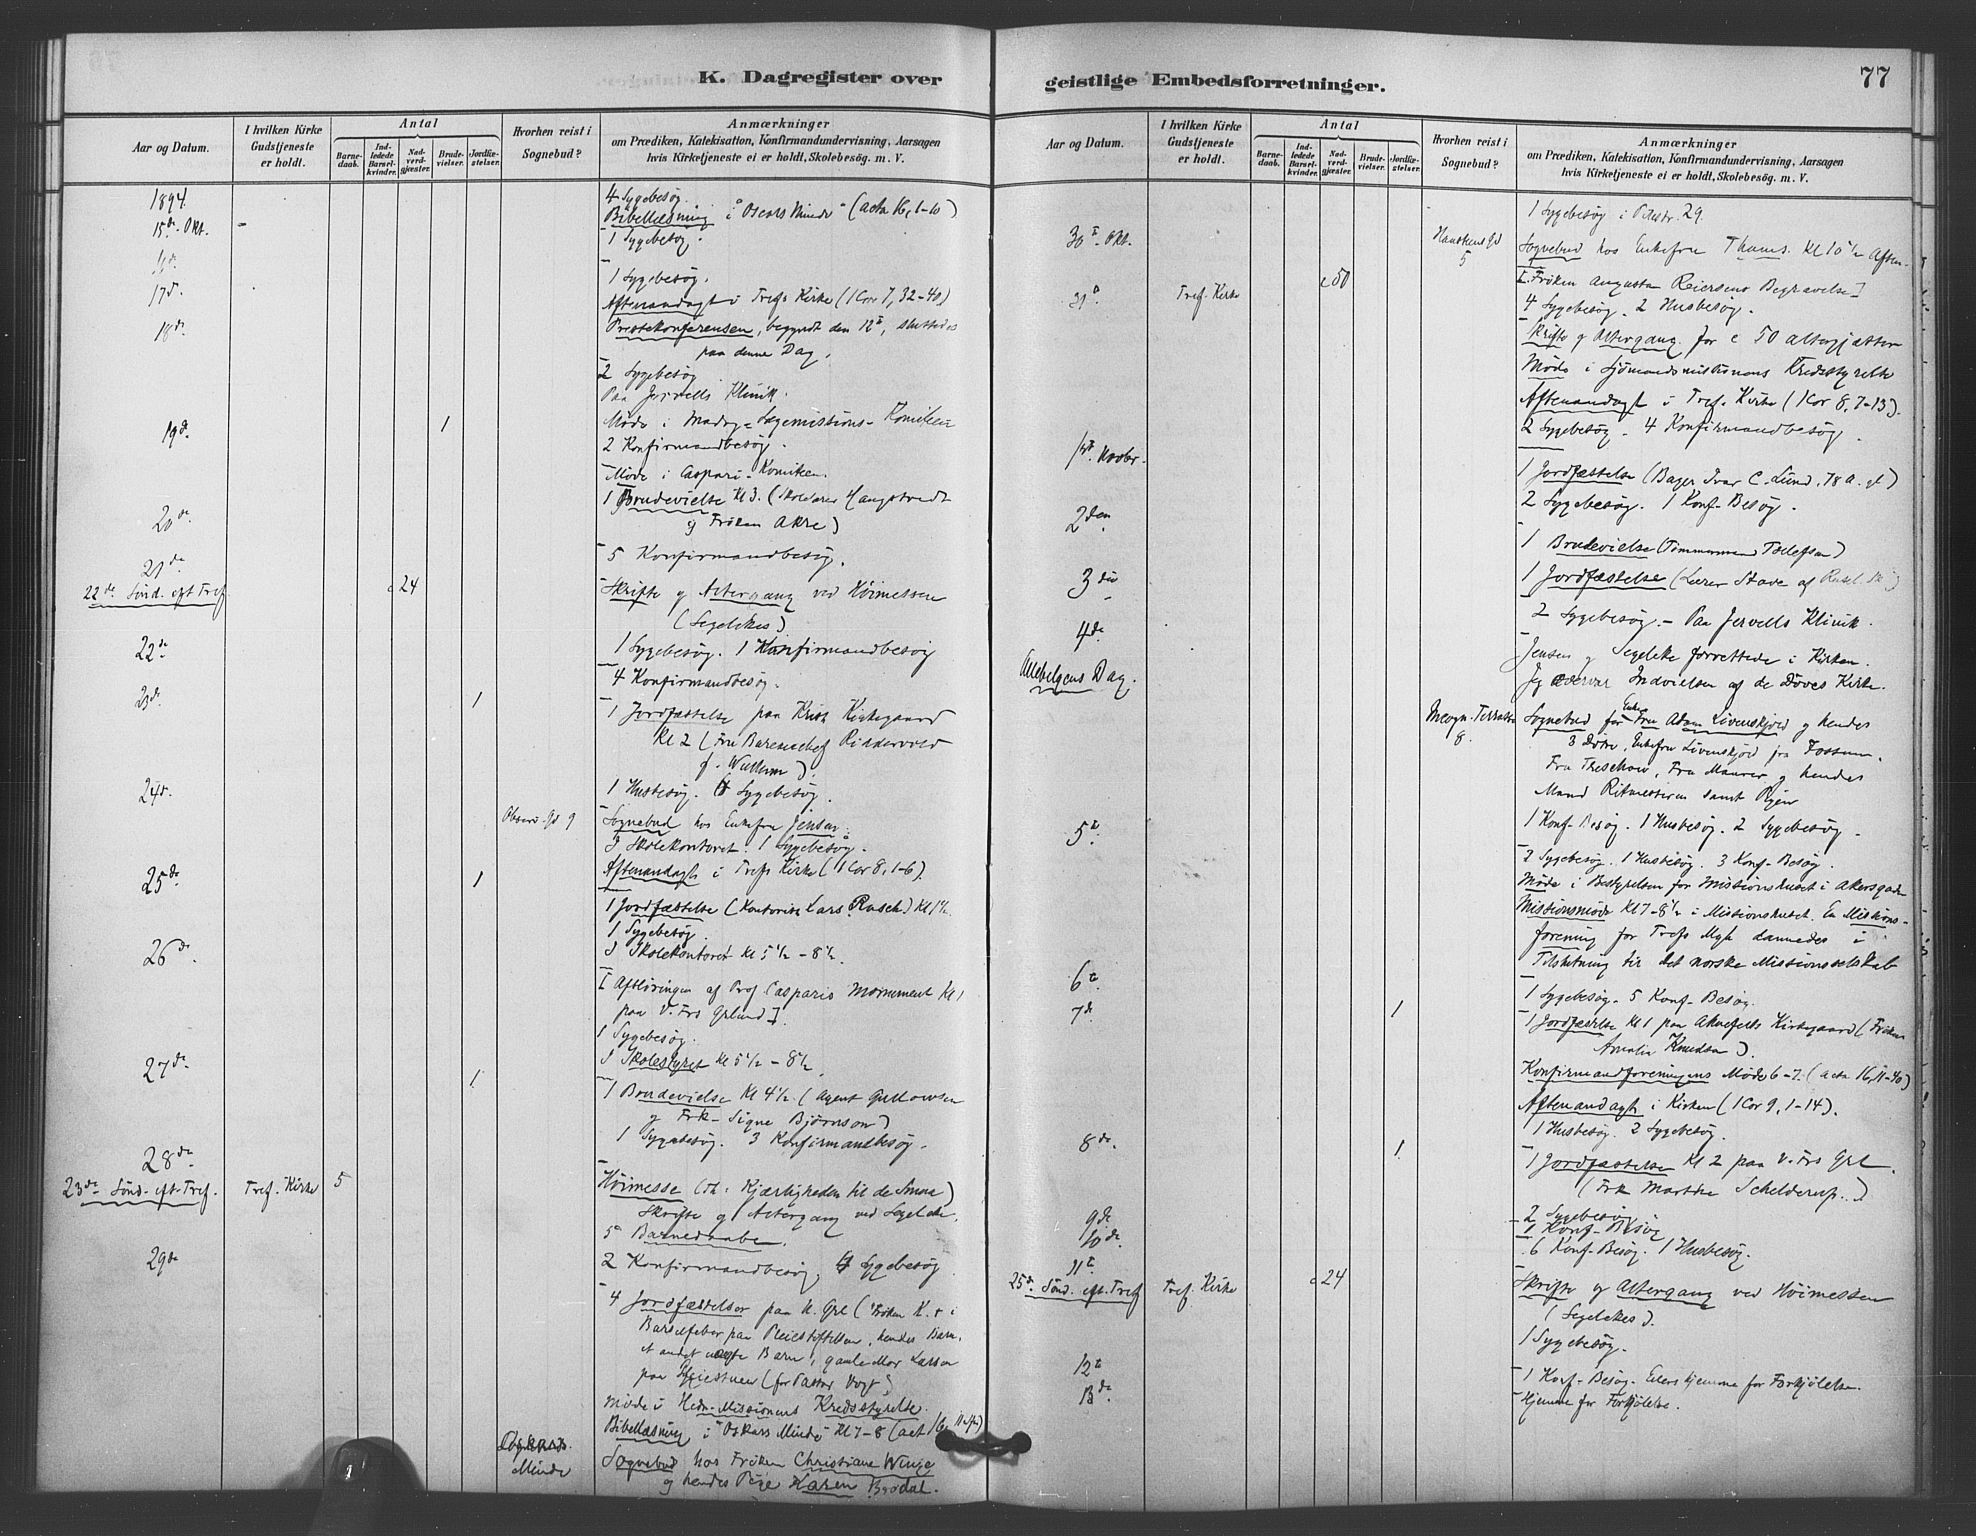 K. Dagregister over geistlige Embedsforretninger.
77
Aar og Datum.
I hvilken Kirke Gudstjeneste er holdt.
Antal
Barnedaab.
Indledede Barselkvinder.
Nadverdgjæster.
Brudevielser.
Jordfæstelser.
Hvorhen reist i Sognebud?
Anmærkninger
om Prædiken, Katekisation, Konfirmandundervisning, Aarsagen
hvis Kirketjeneste ei er holdt, Skolebesög. m. V.
1894
4 Sygebesög.
15de Okt. -
Bibellæsning i "Oscars Minde" (Acta 16, 1-10)
1 Sygebesög.
17d.
1 Sygebesög.
Aftenandagt i Tref. Kirke (1 Cor 7, 32-40)
18de
Prestekonferensen, begyndt den 12te, sluttedes
paa denne Dag.
2 Sygebesög
Paa Jervells Klinik.
19d.
1
Möde i Madag. Lægemissions-Komiteen
2 Konfirmandbesög.
Möde i Caspari-Komiteen.
1 Brudevielse Kl 3. (
20de
og Fröken Akre)
5 Konfirmandbesög.
21de
22de Sönd. eft Tref
c 24
Skrifte og Altergang ved Höimessen
(Segelckes)
1 Sygebesög. 1 Konfirmandbesög
22de
4 Konfirmandbesög.
23d.
1
1 Jordfæstelse paa Krist Kirkegaard
Kl 2 (Fru Ridderwold
f. )
24d.
1 Husbesög. Sygebesög.
Observ. Gd 9
Sognebud hos Enkefru Jensen.
I Skolekontoret. 1 Sygebesög.
Aftenandagt i Trefs Kirke (1 Cor 8, 1-6).
25de
1
1 Jordfæstelse (Kontorist Lars Rasch) Kl 1½.
1 Sygebesög.
26de
I Skolekontoret Kl 5½ - 8½.
[Afslöringen af Prof Casparis Monument Kl 1
paa V. Frs Grlund].
1 Sygebesög.
I Skolestyret Kl 5½ - 8½.
27de
1
1 Brudevielse Kl 4½ (Agent
og Frk. Signe Björnson)
1 Sygebesög. 3 Konfirmandbesög.
28de
23de Sönd. eft. Tref.
Tref. Kirke
5
Höimesse (Th: Kjærligheden til de Smaa)
Skrifte og Altergang ved Segelcke.
5 Barnedaabe.
29de
2 Konfirmandbesög, Sygebesög
4 Jordfæstelser paa
Barselfeber paa Rigshospitalet, hendes Barn,
et andet Barn, gamle Mor Larsen
paa (for Pastor Vogt)
Möde i Hedn.-Missionens Kredsstyrelse.
Bibellæsning i "Oskars Minde" Kl 7-8 (act 16, 11 )
Oskars-Minde
Sognebud hos Fröken Christiane Winge
og hendes Pige Karen Brodal.
Aar og Datum.
I hvilken Kirke Gudstjeneste er holdt.
Antal
Barnedaab.
Indledede Barselkvinder.
Nadverdgjæster.
Brudevielser.
Jordfæstelser.
Hvorhen reist i Sognebud?
Anmærkninger
om Prædiken, Katekisation, Konfirmandundervisning, Aarsagen
hvis Kirketjeneste ei er holdt, Skolebesög. m. V.
1 Sygebesög i Pilestr. 29.
30te Okt.
5
Sognebud hos Enkefru Thams. Kl 10½ Aften.
[Fröken Augusta Reiersens Begravelse]
4 Sygebesög. 2 Husbesög.
31te
Tref. Kirke
c 50
Skrifte og Altergang for c 50 altergjæster
Möde i Sjömandsmissionens Kredsstyrelse
Aftenandagt i Tref. Kirke (1 Cor 8, 7-13).
2 Sygebesög. 4 Konfirmandbesög.
1st Novbr.
1 Jordfæstelse (Bager Ivar C. Lund, 78 A. gl)
2 Sygebesög. 1 Konf-Besög.
2den
1 Brudevielse (Tömmermand Tollefsen)
3die
1 Jordfæstelse (Lærer Stave af )
2 Sygebesög. - Paa Jervells Klinik.
4de
Allehelgens Dag.
Jensen og Segelcke forrettede i Kirken.
Jeg overvar Indvielsen af de Döves Kirke.
Incogn. Terrasse 8.
Sognebud for Enkefru Adam Lövenskjold og hendes
3 Dötre, Enkefru Lövenskjold fra Fossum,
Fru Treschow, Fru Maurer og hendes
Mand Ritmesteren samt Pigen
1 Konf-Besög. 1 Husbesög. 2 Sygebesög.
5te
2 Sygebesög. 1 Husbesög. 3 Konf-Besög.
Möde i Bestyrelsen for Missionshuset i Akersgaden
Missionsmöde Kl 7-8½ i Missionshuset. En Missions-
forening for Trefs Mgh dannedes i
Tilslutning til det norske Missionsselskab
6te
1 Sygebesög. 5 Konf-Besög.
7de
1
1 Jordfæstelse Kl 1 paa Kirkegaard (Fröken
Amalie Knudsen).
Konfirmandforeningens Möde 6-7. (Acta 16, 11-40)
Aftenandagt i Kirken (1 Cor 9, 1-14).
1 Husbesög. 2 Sygebesög.
8de
1
1 Jordfæstelse Kl 2 paa V. Frs Grl.
(Frk Marthe Schelderup.)
9de
2 Sygebesög
1 Konf-Besög
10de
6 Konf-Besög. 1 Husbesög.
11te
25de Sönd. eft. Tref
Tref. Kirke
c 24
Skrifte og Altergang ved Höimessen
(Segelckes).
1 Sygebesög.
12te
1 Konf-Besög. Ellers hjemme for Forkjölelse.
13de
Hjemme for Forkjölelse.